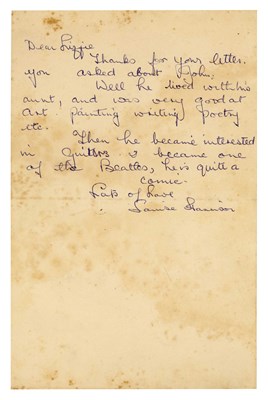 Dear Lizzie
Thanks for your letter.
you asked about John,
Well he lived with his
aunt, and was very good at
Art painting writing poetry
etc.
Then he became interested
in Guitars & became one
of the Beatles, he is quite a
comic.
Lots of Love
Louise Harrison